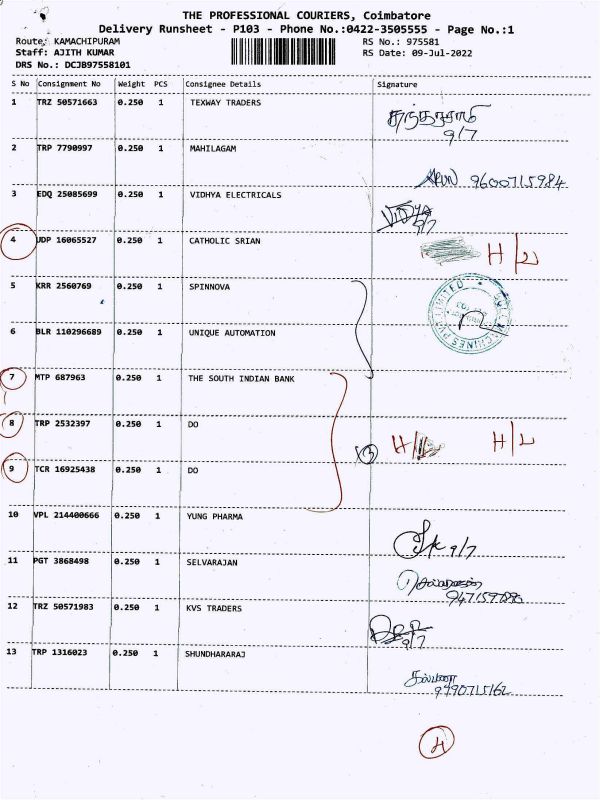 THE PROFESSIONAL COURIERS, Coimbatore
Delivery Runsheet - P103 - Phone No.:0422-3505555 - Page No.:1
Route: KAMACHIPURAM RS No.: 975581
Staff: AJITH KUMAR RS Date: 09-Jul-2022
DRS No.: DCJB97558101
S No Consignment No Weight PCS Consignee Details Signature
1 TRZ 50571663 0.250 1 TEXWAY TRADERS
9/7
2 TRP 7790997 0.250 1 MAHILAGAM
9600715984
3 EDQ 25085699 0.250 1 VIDHYA ELECTRICALS
VIDYA
9/7
4 UDP 16065527 0.250 1 CATHOLIC SRIAN
5 KRR 2560769 0.250 1 SPINNOVA
6 BLR 110296689 0.250 1 UNIQUE AUTOMATION
7 MTP 687963 0.250 1 THE SOUTH INDIAN BANK
8 TRP 2532397 0.250 1 DO
3
9 TCR 16925438 0.250 1 DO
10 VPL 214400666 0.250 1 YUNG PHARMA
9/7
11 PGT 3868498 0.250 1 SELVARAJAN
12 TRZ 50571983 0.250 1 KVS TRADERS
9/7
13 TRP 1316023 0.250 1 SHUNDHARARAJ
9790715162